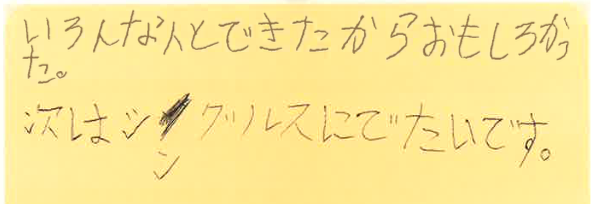 いろんな人とできたからおもしろかっ
た。
次はシングルスにでたいです。